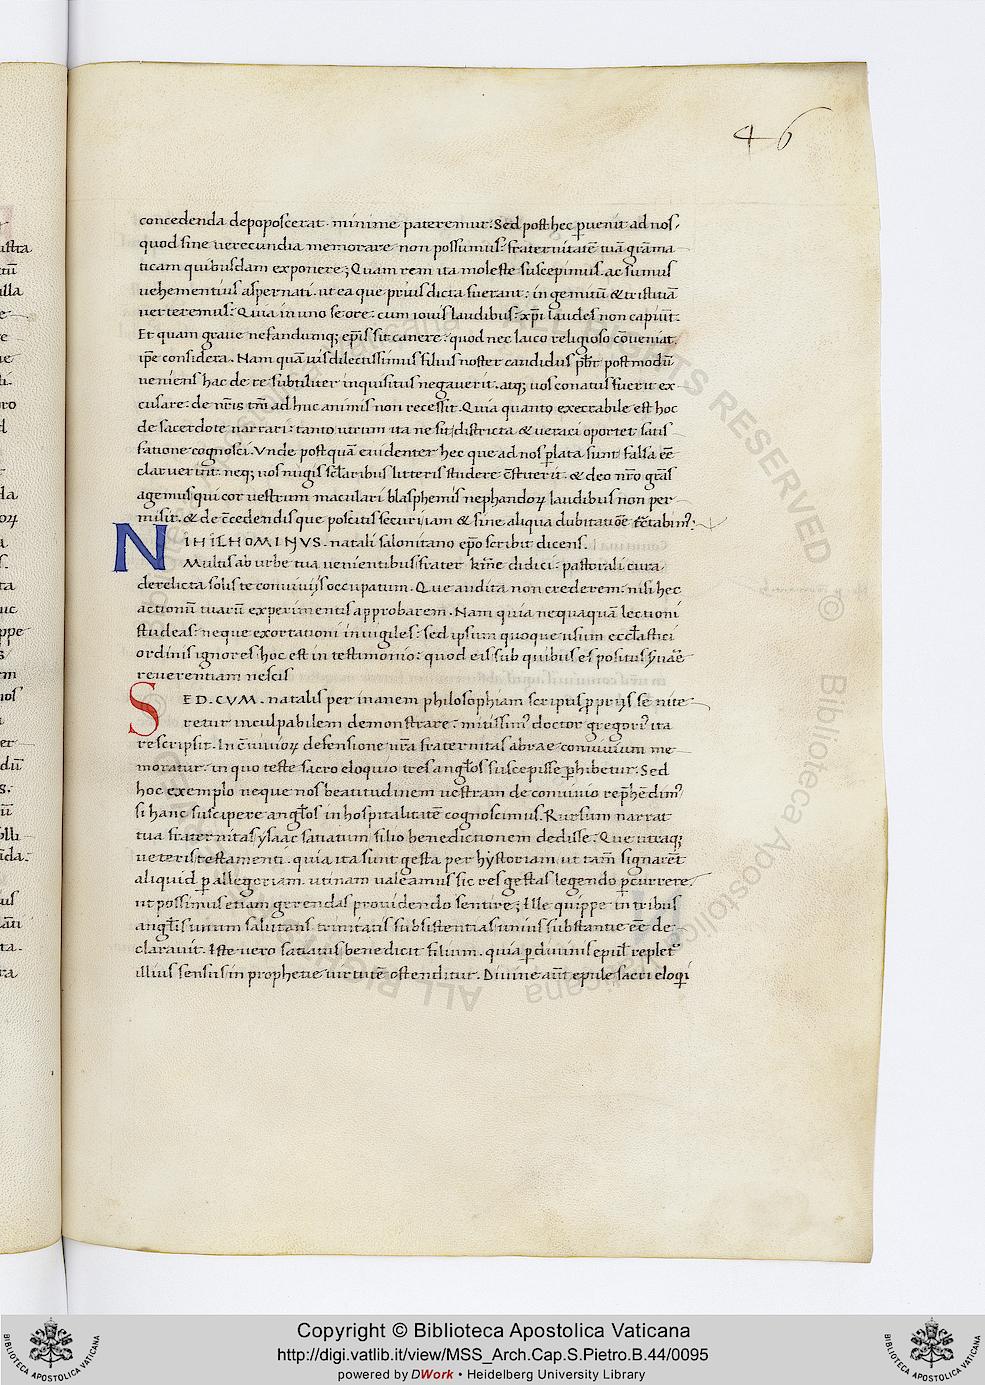 46
concedenda depoposcerat. minime pateremur. Sed post hec ꝑuenit ad nos,
quod sine uerecundia memorare non possumus: fraternitatē tuā grāma
ticam quibusdam exponere; Quam rem ita moleste suscepimus. ac sumus
uehementius aspernati. ut ea que prius dicta fuerant: in gemitū & tristitiā
uerteremus: Quia in uno se ore: cum iouis laudibus: xp̄i laudes non capiūt.
Et quam graue nefandumq; ep̄is sit canere: quod nec laico religioso cōueniat.
ip̄e considera. Nam quāuis dilectissimus filius noster candidus p̄bt̄ postmodū
ueniens hac de re subtiliter inquisitus negauerit. atq; uos conatus fuerit ex
cusare: de nr̄is tm̄ adhuc animis non recessit. Quia quanto execrabile est hoc
de sacerdote narrari: tanto utrum ita ne sit districta & ueraci oportet satis
fatione cognosci. Vnde postquā euidenter hec que ad nos ꝑlata sunt falsa eē
claruerint. neq; uos nugis sc̄laribus litteris studere cōstiterit. & deo nr̄o grās
agemus qui cor uestrum maculari blasphemis nephandoꝝ laudibus non per
misit. & de cōcedendis que poscitis securi iam & sine aliqua dubitatiōe tc̄tabimꝰ:
NIHILHOMINVS. natali salonitano ep̄o scribit dicens.
Multis ab urbe tua uenientibus frater kr̄me didici: pastorali cura
derelicta solis te conuiuijs occupatum. Que audita non crederem: nisi hec
actionū tuarū experimentis approbarem. Nam quia nequaquā lectioni
studeas: neque exortationi inuigiles: sed ipsum quoque usum eccl̄astici
ordinis ignores hoc est in testimonio: quod eis sub quibus es positus
reuerentiam nescis
SED. CVM. natalis per inanem philosophiam scriptis ꝓprijs se nite
retur inculpabilem demonstrare: mitissimꝰ doctor gregoriꝰ ita
rescripsit. In cōuiuioꝝ defensione ur̄a fraternitas abrae conuiuium me
moratur. in quo teste sacro eloquio tres angl̄os suscepisse ꝑhibetur. Sed
hoc exemplo neque nos beatitudinem uestram de conuiuio rep̄hēdimꝰ
si hanc suscipere angl̄os in hospitalitatē cognoscimus. Rursum narrat
tua fraternitas ysaac satiatum filio benedictionem dedisse. Que utraq;
ueteris testamenti. quia ita sunt gesta per hystoriam ut tam̄ signarēt
aliquid ꝑ allegoriam. utinam ualeamus sic res gestas legendo ꝑcurrere.
ut possimus etiam gerendas prouidendo sentire; Ille quippe in tribus
angl̄is unum salutans trinitatis subsistentias unius substantie eē de
clarauit. Iste uero satiatus benedicit filium. quia ꝑ diuinis epul̄ repletꝰ
illius sensus in prophetie uirtutē ostenditur. Diuine aūt epule sacri eloq̄i
Copyright © Biblioteca Apostolica Vaticana
http://digi.vatlib.it/view/MSS_Arch.Cap.S.Pietro.B.44/0095
powered by DWork • Heidelberg University Library